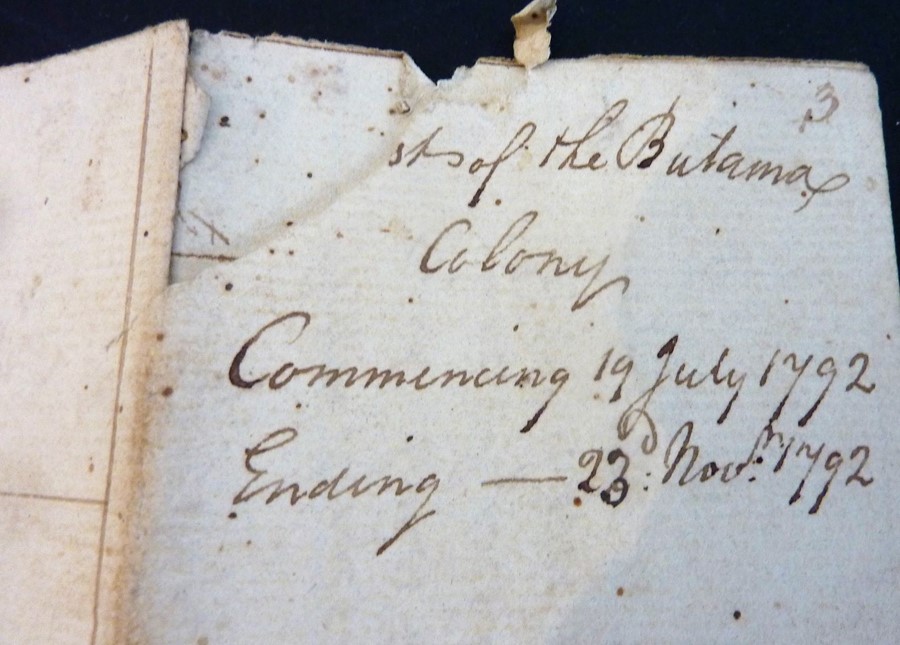 3
sts of the Bulama
Colony
Commencing 19 July 1792
Ending — 23d: Novr. 1792